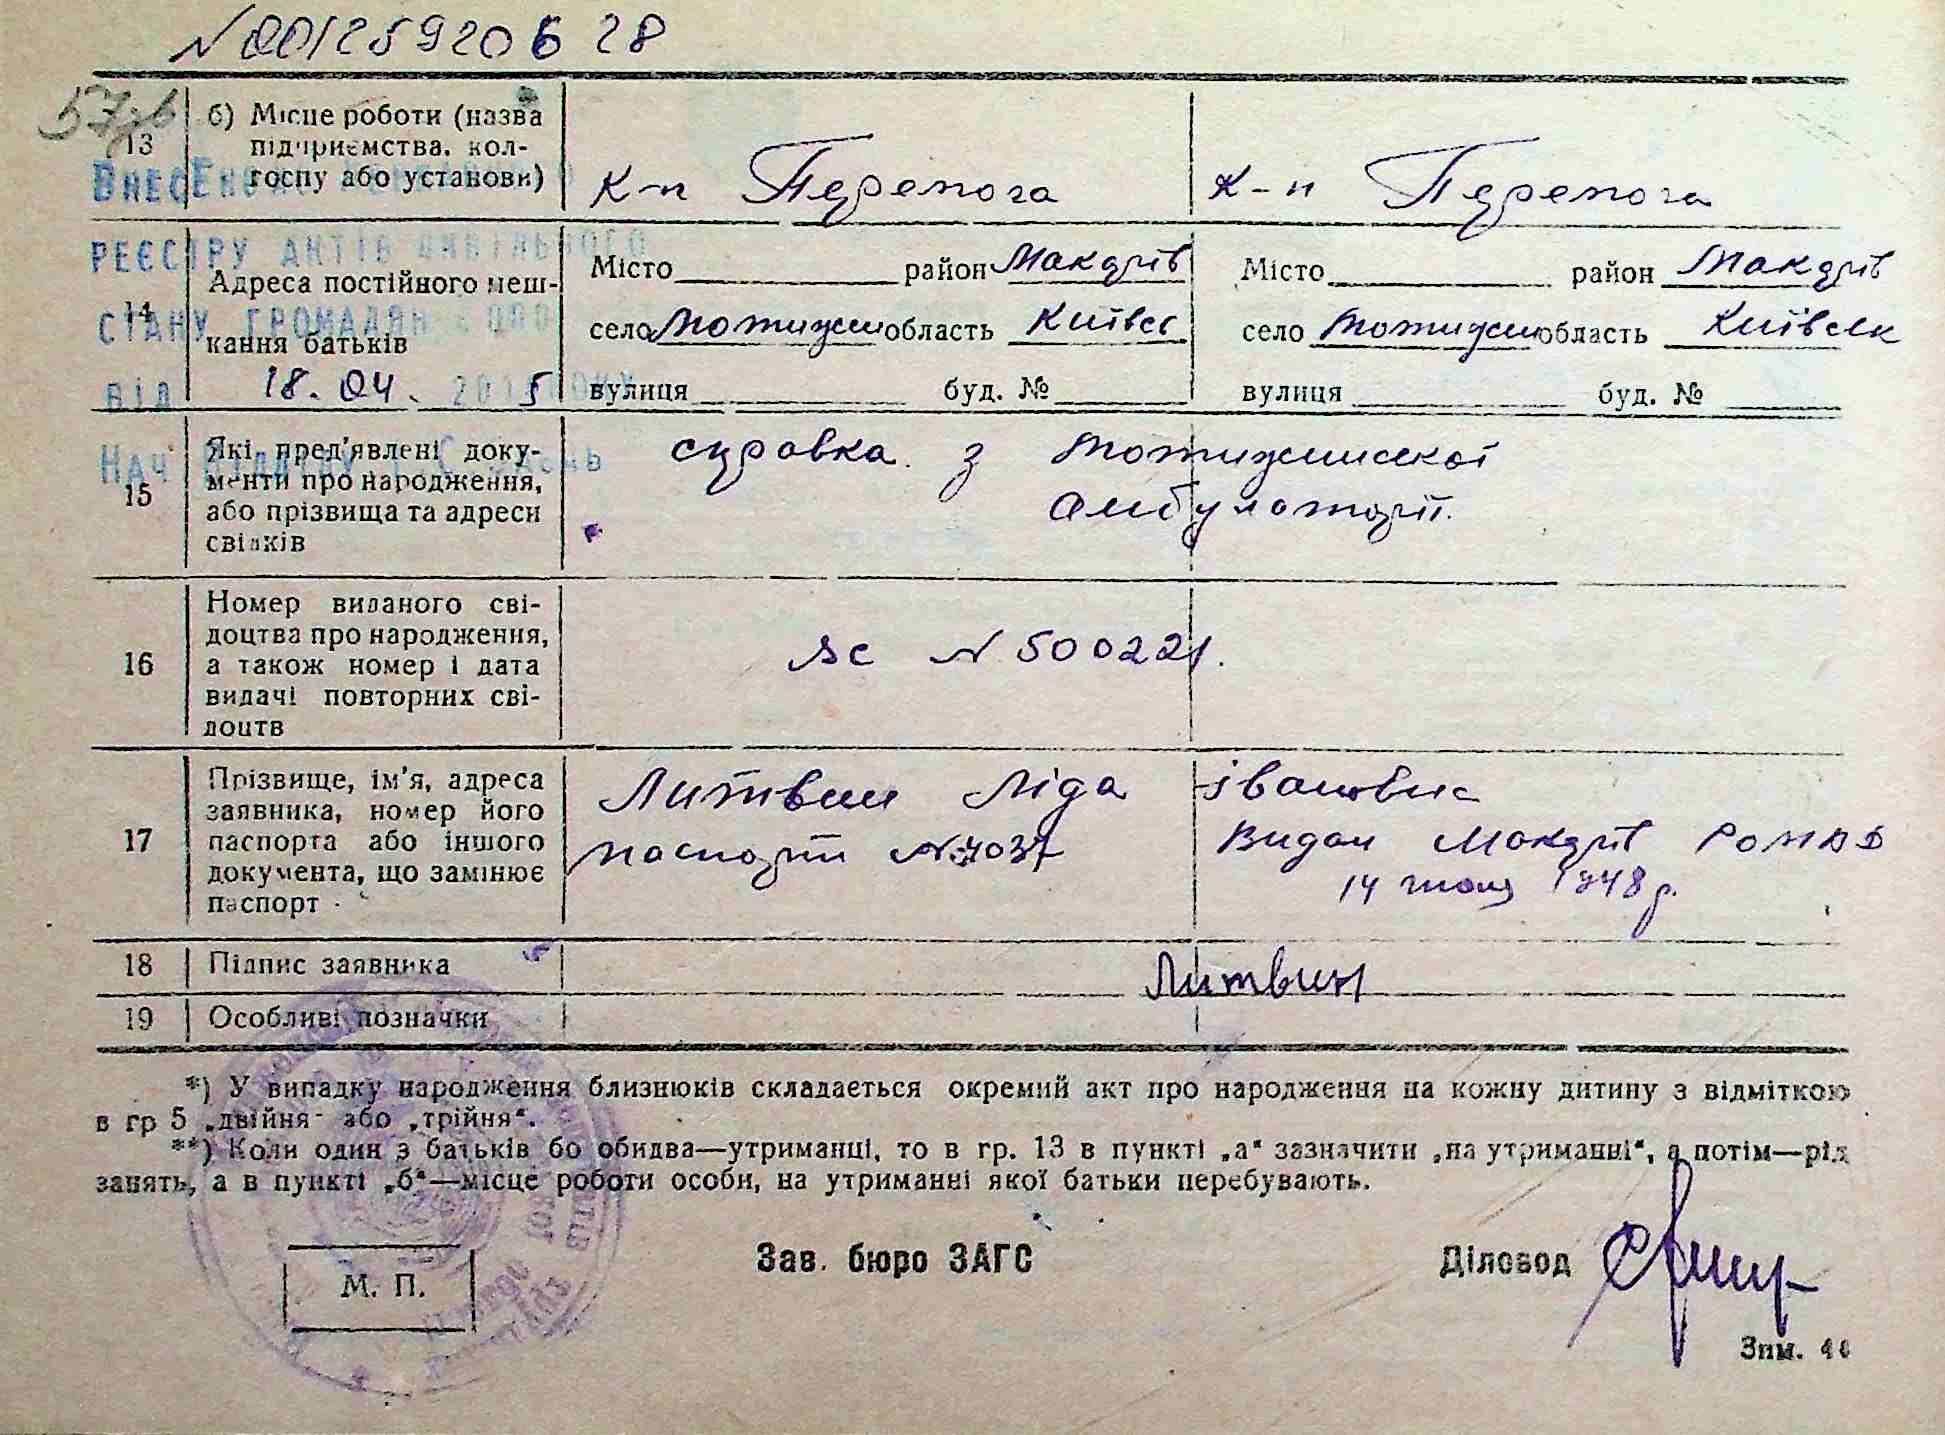 N00125920628
57зв
13 б) Місце роботи (назва підприємства, колгоспу або установи)
к-п Перемога
к-п Перемога
Внесено
реєстру актів цивільного
стану громадян
від 18.04. 2015 року
Нач. відділу
14 Адреса постійного мешкання батьків
Місто район Макарів
село Мотижин область Київсь
вулиця буд. №
Місто район Макарів
село Мотижин область Київськ
вулиця буд. №
15 Які пред'явлені документи про народження, або прізвища та адреси свідків
справка з Мотижинської
амбулаторії.
16 Номер виданого свідоцтва про народження, а також номер і дата видачі повторних свідоцтв
N 500221.
17 Прізвище, ім'я, адреса заявника, номер його паспорта або іншого документа, що замінює паспорт
Литвин Ліда Івановна
паспорт
Видан Макарів
14 1948 р.
18 Підпис заявника
Литвин
19 Особливі позначки
*) У випадку народження близнюків складається окремий акт про народження на кожну дитину з відміткою
в гр 5 „двійня" або „трійня“.
**) Коли один з батьків бо обидва—утриманці, то в гр. 13 в пункті „а“ зазначити „на утриманні“, а потім—рід
занять, а в пункті „б“—місце роботи особи, на утриманні якої батьки перебувають.
М. П.
Зав. бюро ЗАГС
Діловод
Зам.